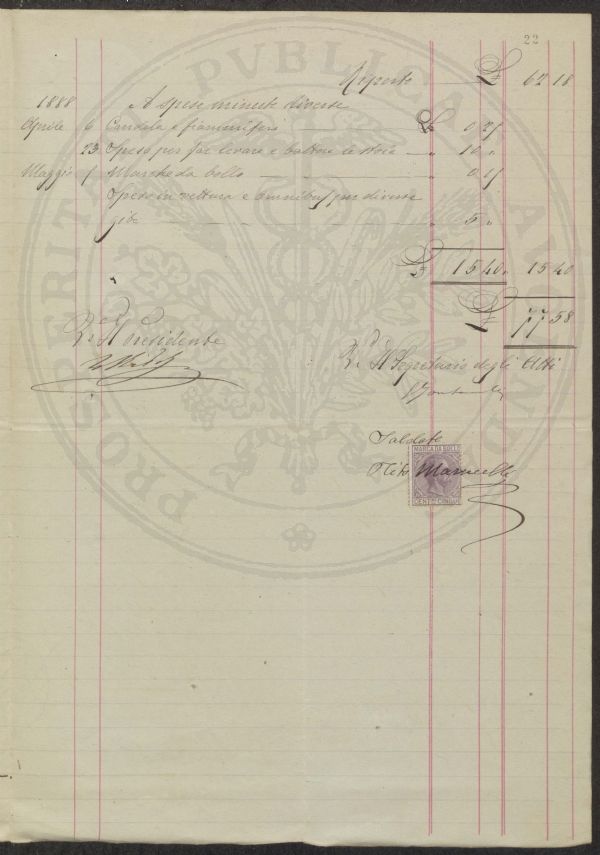 22
Riporto £ 62 18
1888 A spese minute diverse
Aprile 6 Candela e fiammiferi £ 0.25
23 Spesa per far levare e battere le stoie " 10 "
Maggio 1 Marche da bollo " 0.15
Spese in vettura e omnibus per diverse
gite " 5 "
" £ 15 40 " 15 40
£ 77 58
Il Presidente Il Segretario degli Atti
Saldato
Tito
MARCA DA BOLLO
CENT. CINQUE
PROSPERITATI PVBLICAE AVGENDAE